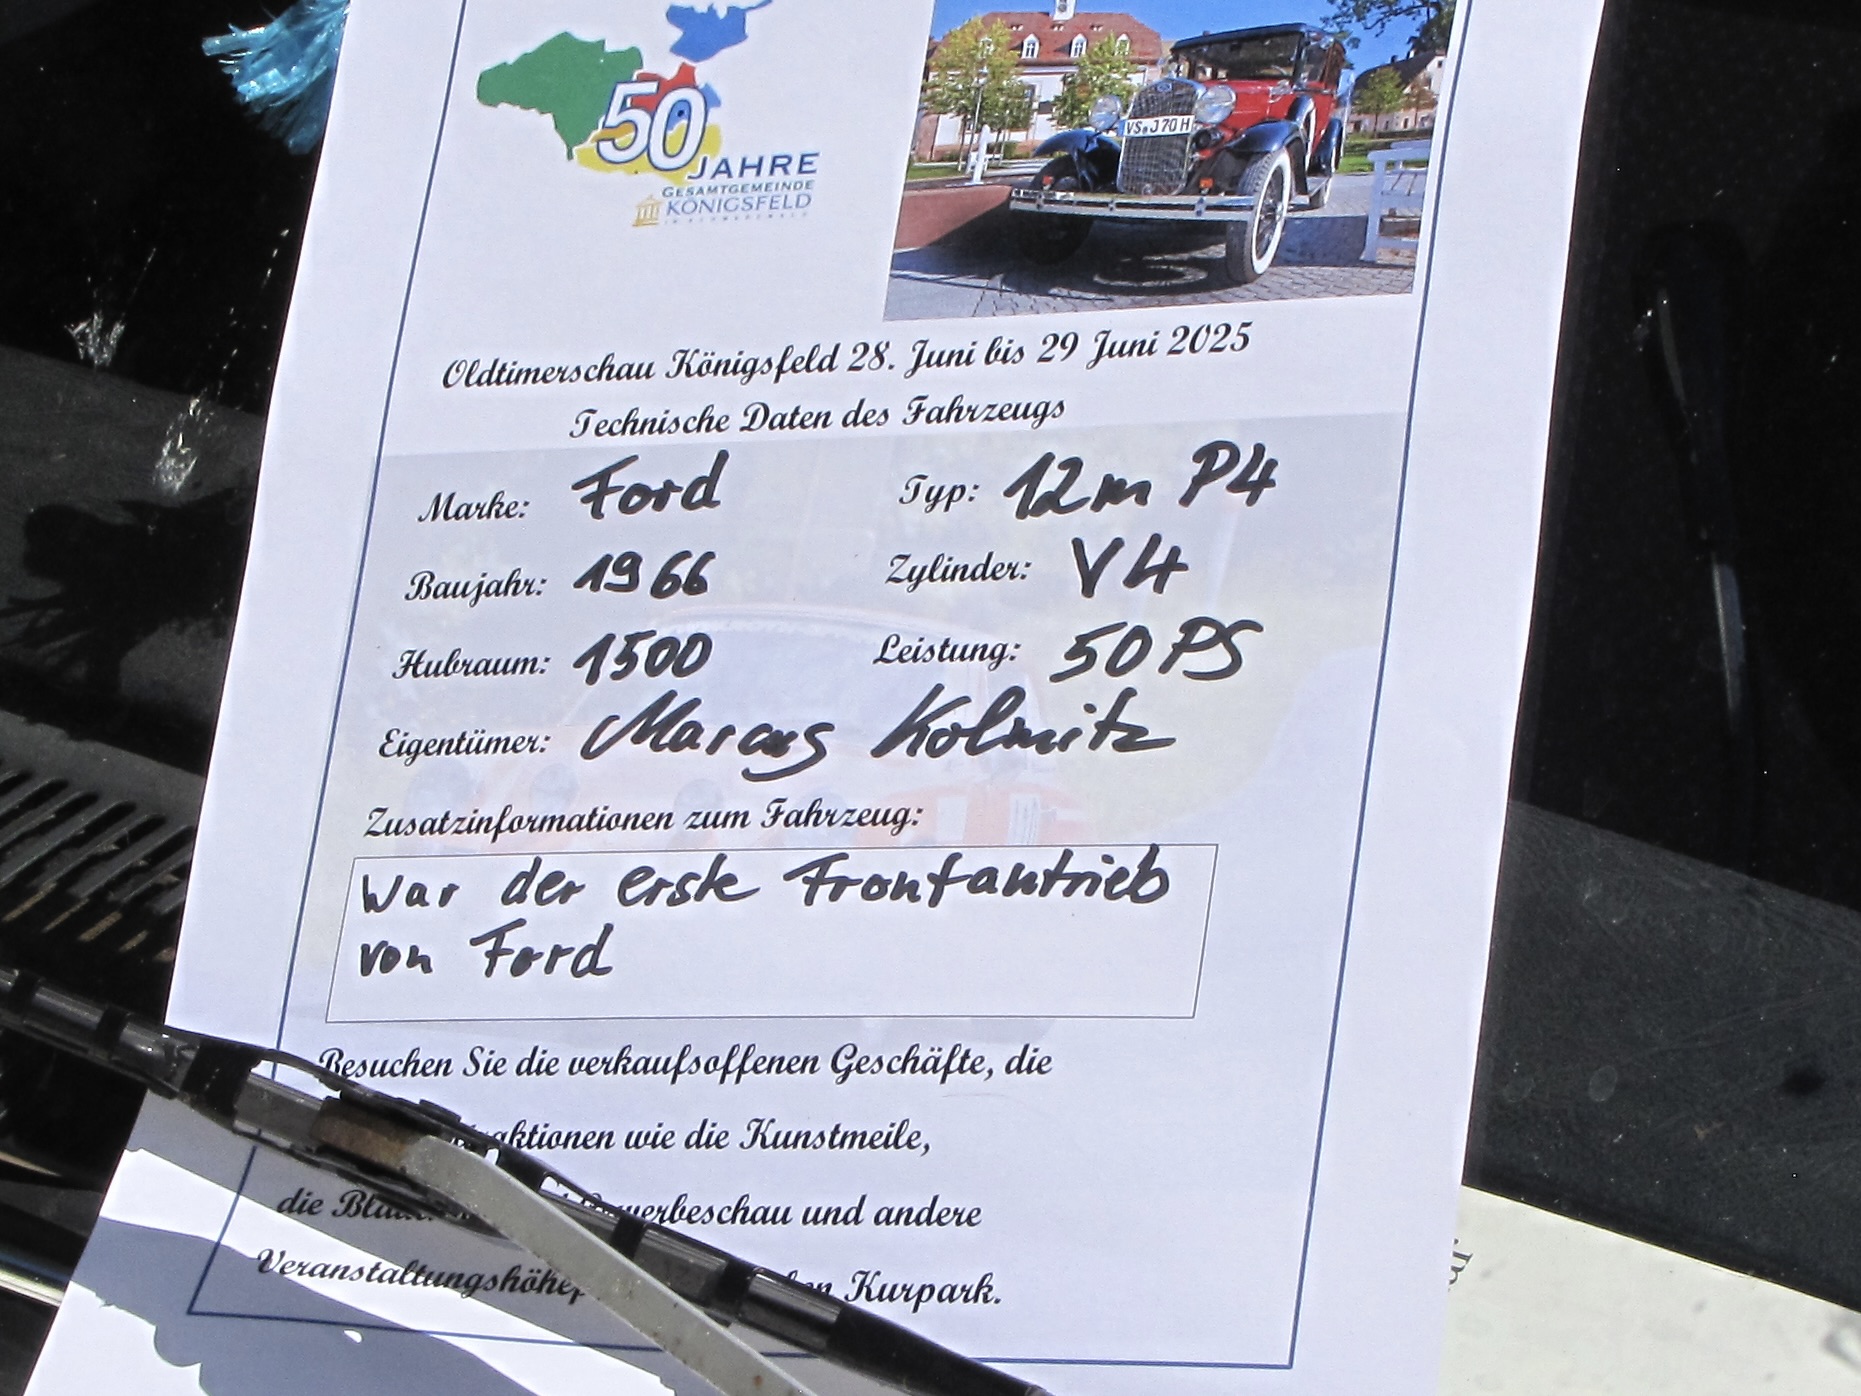 50
JAHRE
GESAMTGEMEINDE
KÖNIGSFELD
VS J 70 H
Oldtimerschau Königsfeld 28. Juni bis 29 Juni 2025
Technische Daten des Fahrzeugs
Marke: Ford Typ: 12m P4
Baujahr: 1966 Zylinder: V4
Hubraum: 1500 Leistung: 50 PS
Eigentümer: Marcus Kolmitz
Zusatzinformationen zum Fahrzeug:
War der erste Frontantrieb
von Ford
Besuchen Sie die verkaufsoffenen Geschäfte, die
wie die Kunstmeile,
die und andere
Kurpark.